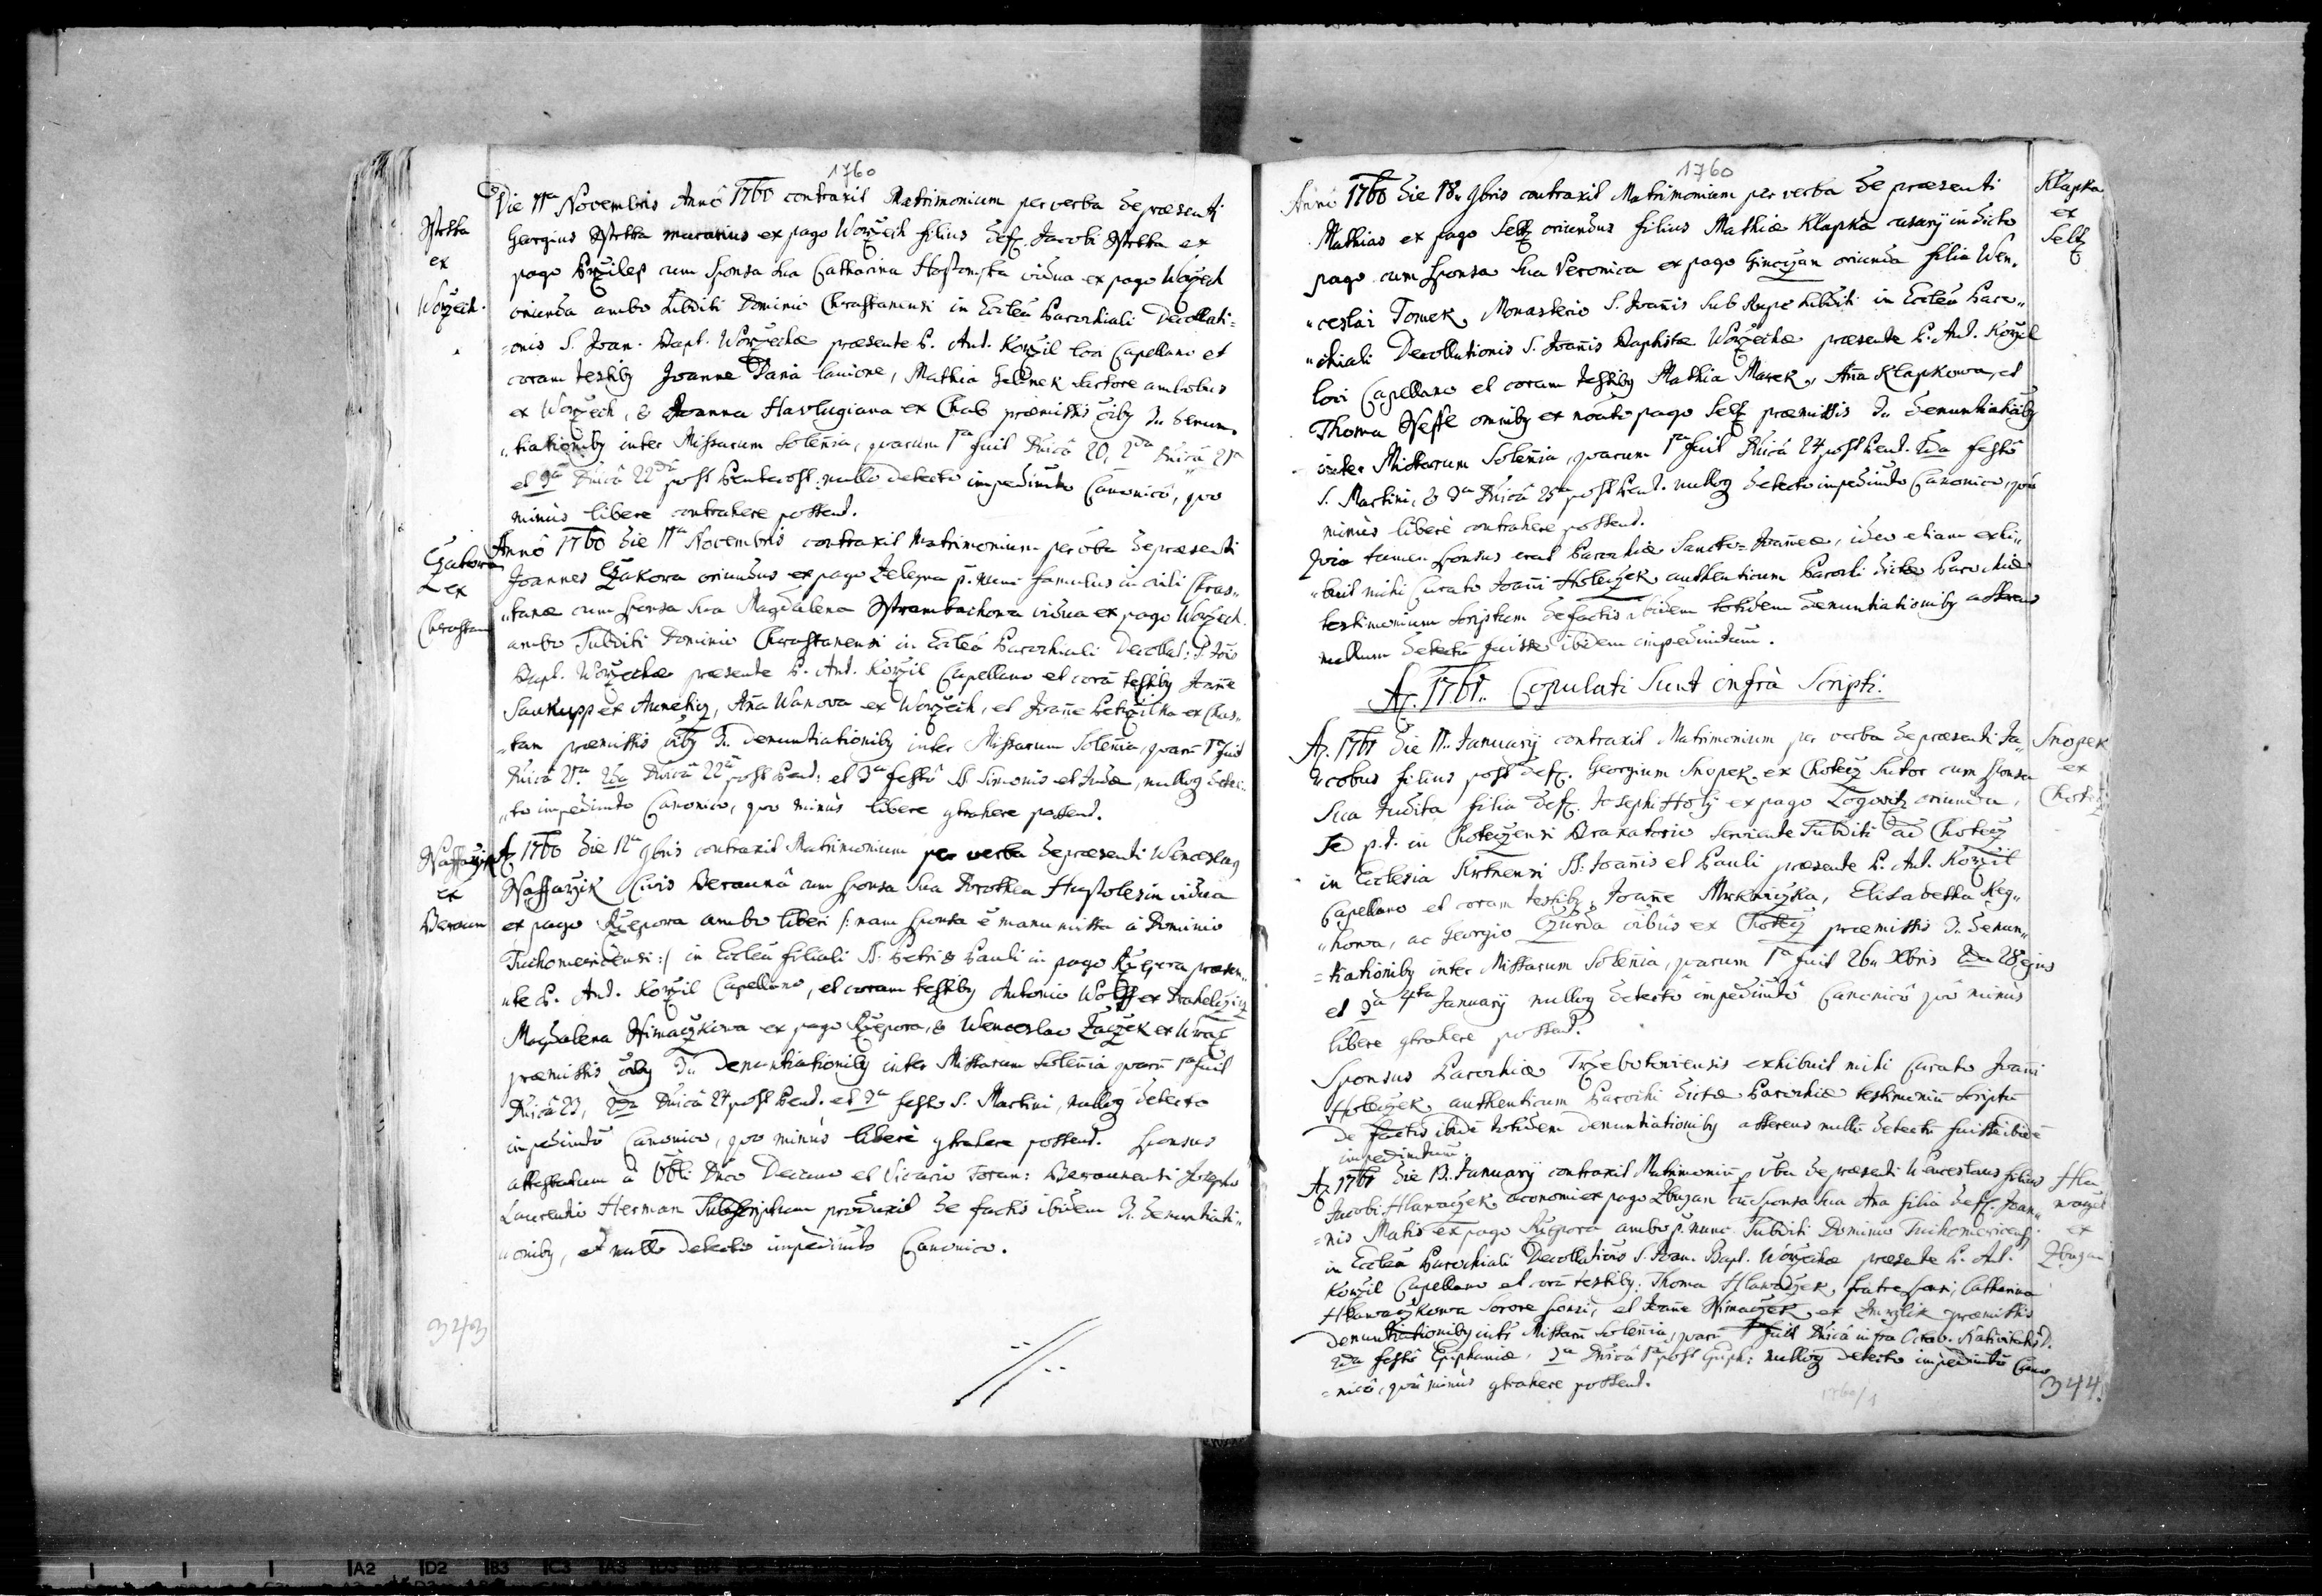 1760
Die 11ma Novembris Annô 1760 contraxit Matrimonium per verba de præsenti
ex
Worzech.
Georgius ex pago Worzech filius def. Jacobi ex
pago cum sponsa sua Catharina vidua ex pago Worzech
oriunda ambo subditi Dominio Chrastanensi in Ecclea Parochiali Decollati=
=onis S. Joan. Bapt. Worzechæ præsente P. Ant. Korzil loci Capellano et
coram testiby Joanne lanione, Mathia Sartore ambobus
ex Worzech, & ex Chrast præmissis 3. denun„
„tiationiby inter Missarum Solenia, quarum 1ma fuit Dnica 20, 2da Dnica 21ma
et 3tia Dnica 22da post Pentecost. nullo detecto impedimto Canonicô, quo
minùs liberè contrahere possent.
Czakora
ex
Chrastan
Annô 1760 die 11ma Novembris contraxit Matrimonium per vba de præsenti
Joannes Czakora oriundus ex pago Zelezna p. nunc famulus in Chras„
„tanæ cum sponsa sua Magdalena vidua ex pago Worzech.
ambo Subditi Dominio Chrastanensi in Ecclea Parochiali Decollat: S. Jois
Bapt. Worzechæ præsente P. Ant. Korzil Capellano et corã testiby Joanne
Saukupp ex Auneticz, Aña Wanowa ex Worzech, et Joañe ex Chras„
„tan præmissis 3. denuntiationiby inter Missarum Solenia, quarũ 1ma fuit
Dnica 21ma 2da Dnica 22da post Pent: et 3tia festô SS Simonis et Judæ, nulloq detec„
„to impedimto Canonico, quo minùs libere gtrahere possent.
ex
Beraun
A. 1760 die 12ma 9bris contraxit Matrimonium per verba de præsenti Wenceslaus
Civis Beraunâ cum sponsa sua Dorothea vidua
ex pago Rzepora ambo liberi /: nam sponsa e manumissa à Dominio
Tuchomericensi :/ in Ecclea filiali SS. Petri & Pauli in pago Rzepora præsen„
„te P. Ant. Korzil Capellano, et coram testiby Antonio Wolff ex
Magdalena ex pago Rzepora, & Wenceslao Zaczek ex
præmissis 3. Denuntiationiby inter Missarum Solenia quarũ 1ma fuit
Dnica 23, 2da Dnica 24 post Pent. et 3tia festo S. Martini, nulloq detecto
impedimtô Canonico, quo minùs liberè gtrahere possent. Sponsus
attestatum à Dno Decano et Vicario Foran: Beraunensi Josepho
Laurentio Herman Subscriptum produxit de factis ibidem 3. denuntiati„
„oniby, et nullo detecto impedimto Canonico.
343
1760
Annô 1760 die 18. 9bris contraxit Matrimonium per verba de præsenti
Klapka
ex
Seltz
Mathias ex pago Seltz oriundus filius Mathiæ Klapka casarij in dicto
pago cum sponsa sua Veronica ex pago Ginoczan oriunda filia Wen„
„ceslai Tomek, Monasterio S. Joañis Sub Rupe subditi in Ecclea Paro„
„chiali Decollationis S. Joañis Baptistæ Worzechæ præsente P. Ant. Korzil
loci Capellano et coram testiby Mathia Marek, Aña Klapkowa, et
Thoma omniby ex noato pago Seltz præmissis 3. denuntiatioiby
inter Missarum Solenia, quarum 1ma fuit Dnica 24 post Pent. 2da festô
S. Martini, & 3tia Dnica 25ta post Pent. nulloq detecto impedimto Canonico, quo
minùs liberè contrahere possent.
Quia tamen sponsus erat Parochiæ Sancto=Joañeæ, ideo etiam exhi„
„buit mihi Curato Joañi Holeczek authenticum Parochi dictæ Parochiæ
testimonium scriptum de factis ibidem totidem denuntiationiby asserens
nullum detectũ fuisse ibidem impedimtum.
A. 1761. Copulati Sunt infrà Scripti.
A. 1761 die 11. January contraxit Matrimonium per verba de præsenti Ja„
Snopek
ex
„cobus filius post def. Georgium Snopek ex Chotecz Sutor cum sponsa
sua Judita filia def. Josephi Holy ex pago oriunda,
Sed p.t. in Choteczensi Braxatorio serviente Subditi ad Chotecz
in Ecclesia SS: Joañis et Pauli præsente P. Ant. Korzil
Capellano et coram testiby Joañe Elisabetha
ac Georgio Czurda oibus ex Chotecz præmissis 3. denun„
=tiationiby inter Missarum Solenia, quarum 1ma fuit 26. Xbris 2da 28 ejus
et 3tia 4ta January nulloq detectô impedimtô Canonicô quo minùs
libere gtrahere possent.
Sponsus Parochiæ Trzebotoviensis exhibuit mihi Curato Joañi
Holeczek authenticum Parochi dictæ Parochiæ testimoniũ scriptũ
de factis ibidẽ totidem denuntiationiby asserens nullũ detectũ fuisse ibidẽ
impedimtum.
A. 1761 die 13. January contraxit Matrimoniũ p vba de præsenti Wenceslaus filius
Hla
waczek
ex
Zbuzan
Jacobi Hlawaczek œconomi ex pago Zbuzan cũ sponsa sua Aña filia def. Joan„
=nis Matis ex pago Rzepora ambo p. nunc Subditi Dominio Tuchomericensi
in Ecclea Parochiali Decollationis S. Joan. Bapt. Worzechæ præsente P. Ant.
Korzil Capellano et corã testiby: Thoma Hlawaczek, fratre sponsi, Catharina
Hlawaczkowa sorore sponsi, et Joañe ex præmissis
Denuntiationiby intr Missarũ Solenia, quarũ 1ma fuit Dnica infra Octav. Nativitatis D.
2da festô Epiphaniæ, 3tia Dnica 1ma post Epiph: nulloq detecto impedimtô Cano
=nicô, quo minùs gtrahere possent.
1760/1
344